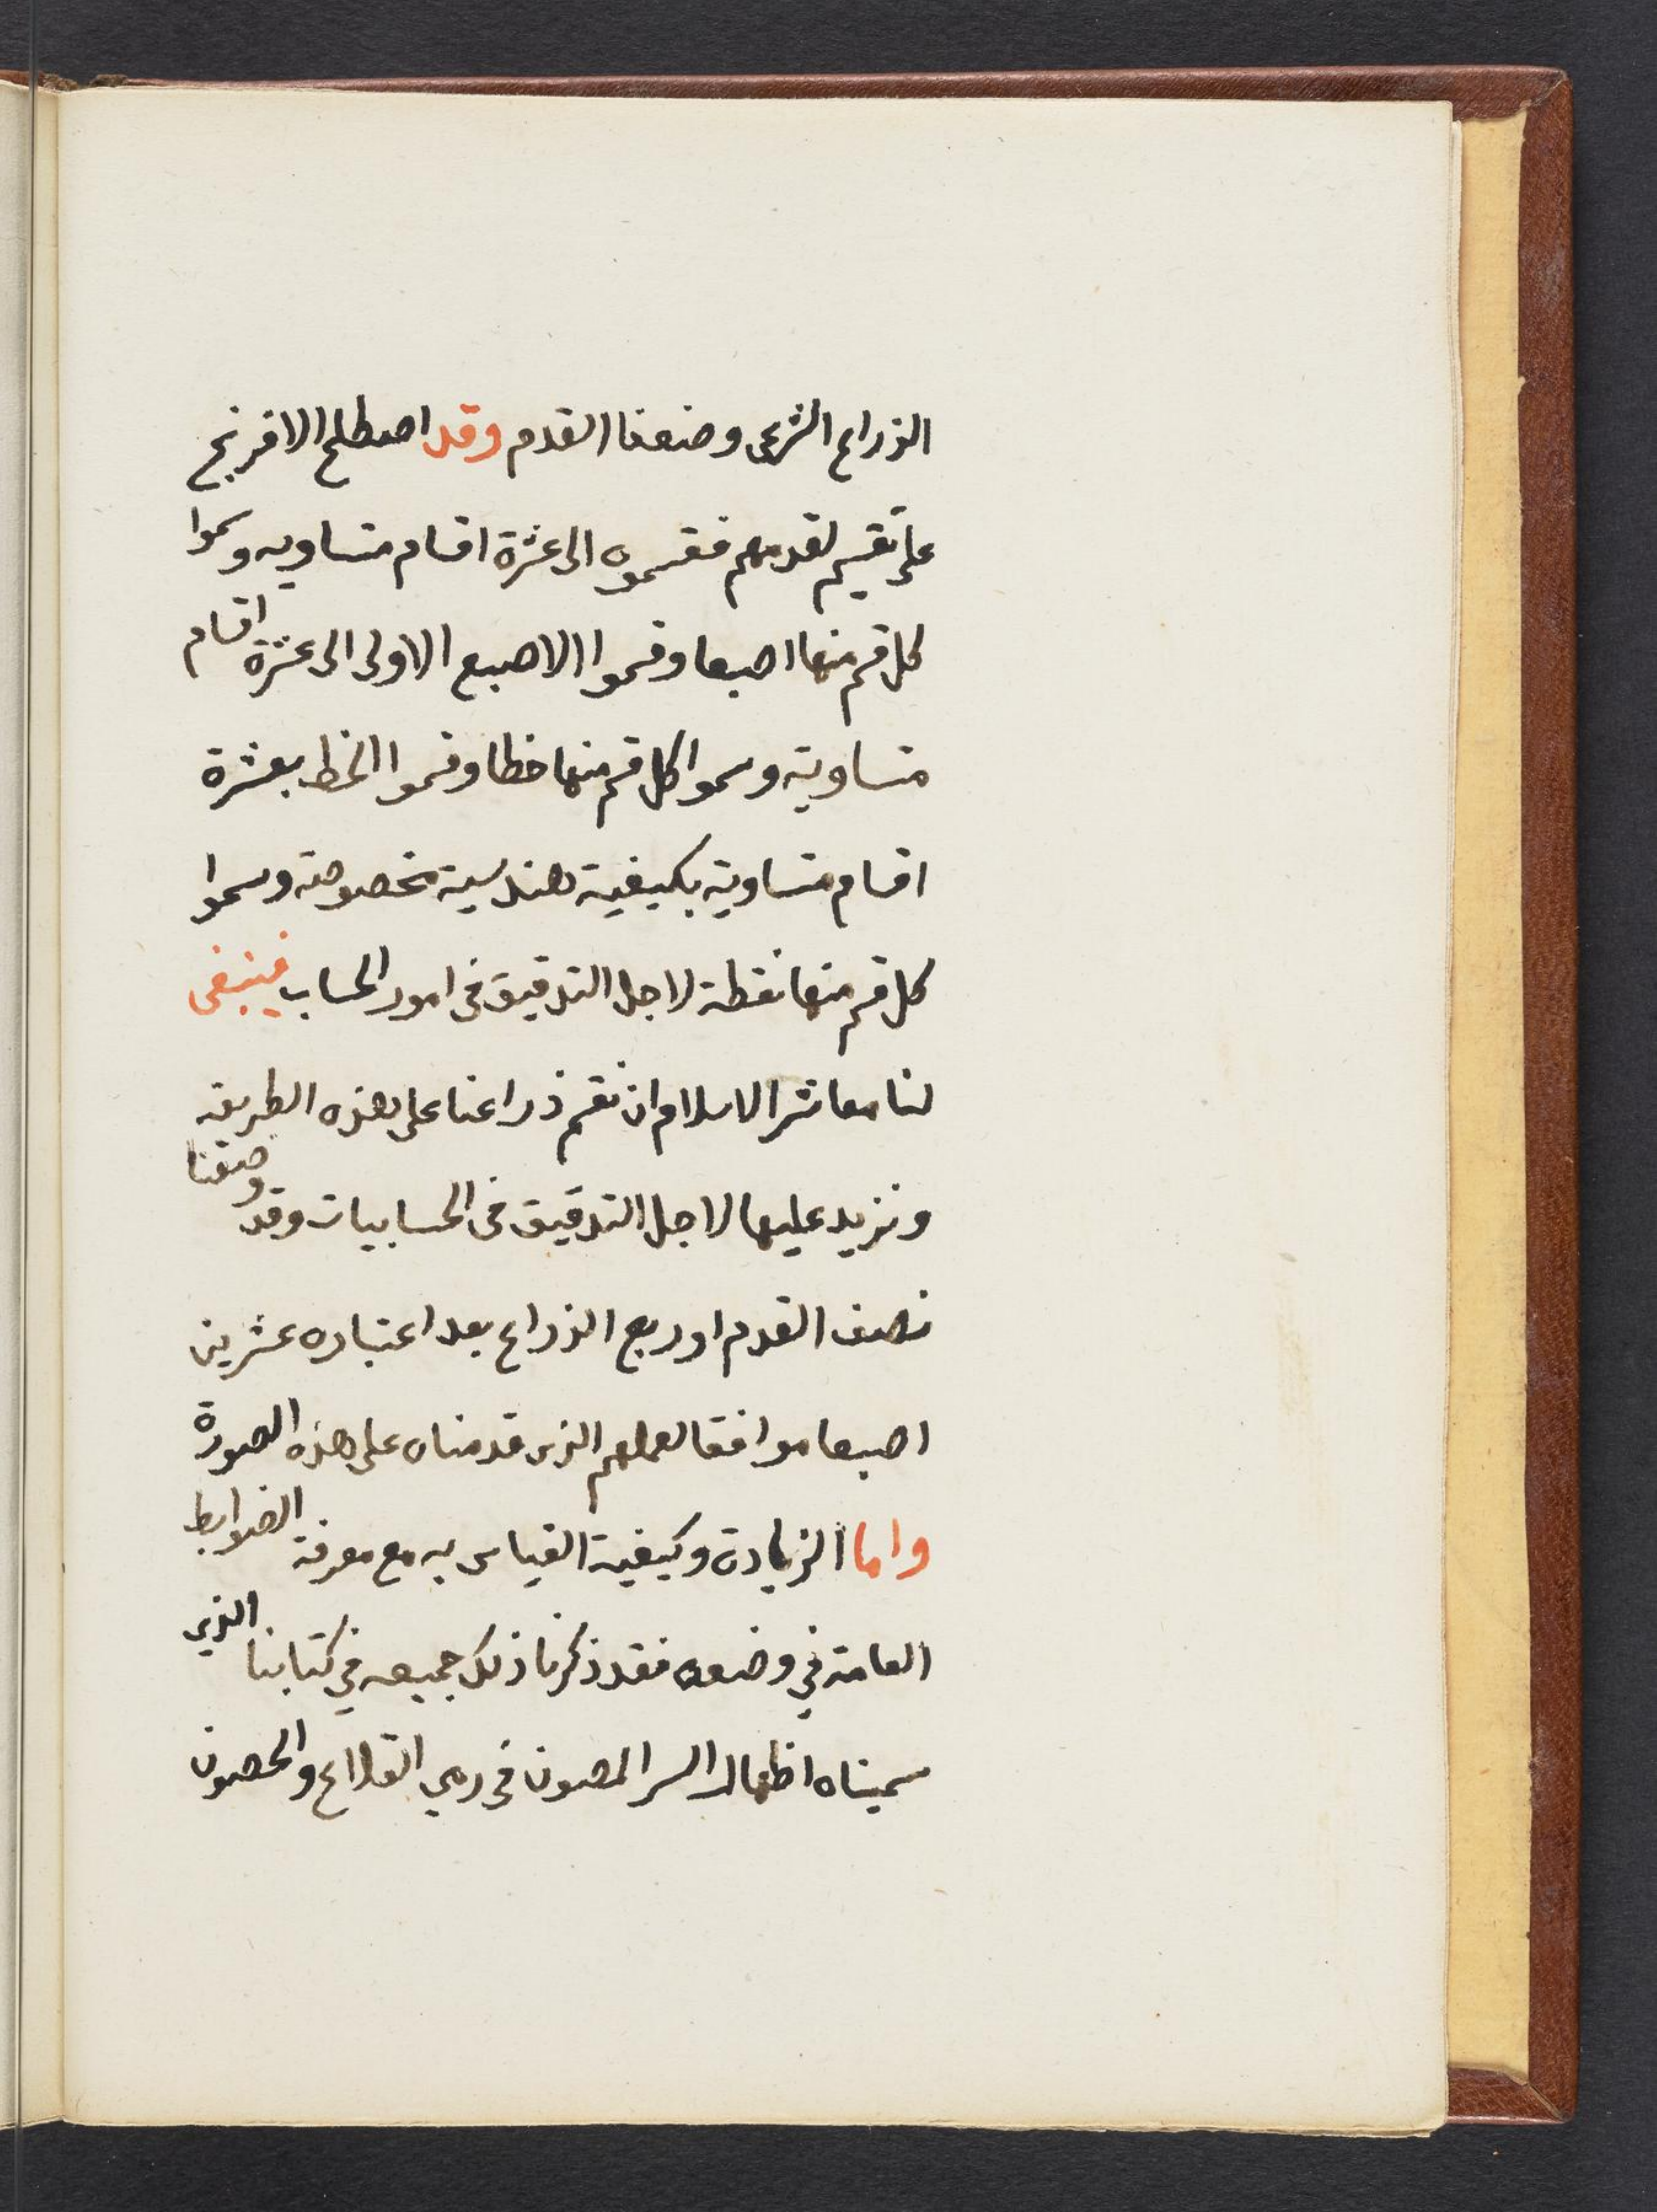 الذراع الشرعى وضعفنا القدم وقد اصطلح الافرنج
على تقسيم لقدمهم فقسموه الى عشرة اقسام متساويه وسموا
كل قسم منها اصبعا وقسموا الاصبع الاولى الى عشرة اقسام
متساوية وسموا كل قسم منها خطا وقسموا الخط بعشرة
اقسام متساوية بكيفية هندسية مخصوصة وسموا
كل قسم منها نقطة لاجل التدقيق فى امور الحساب فينبغى
لنا معاشر الاسلام ان نقسم ذراعنا على هذه الطريقه
ونزيد عليها لاجل التدقيق فى الحسابيات وقد وضعنا
نصف القدم او ربع الذراع بعد اعتباره عشرين
اصبعا موافقا لعملهم الذى قدمناه على هذه الصورة
واما الزيادة وكيفية القياس به مع معرفة الضوابط
العامة في وضعه فقد ذكرنا ذلك جميعه في كتابنا الذى
سميناه اظهار السر المصون فى رمي القلاع والحصون